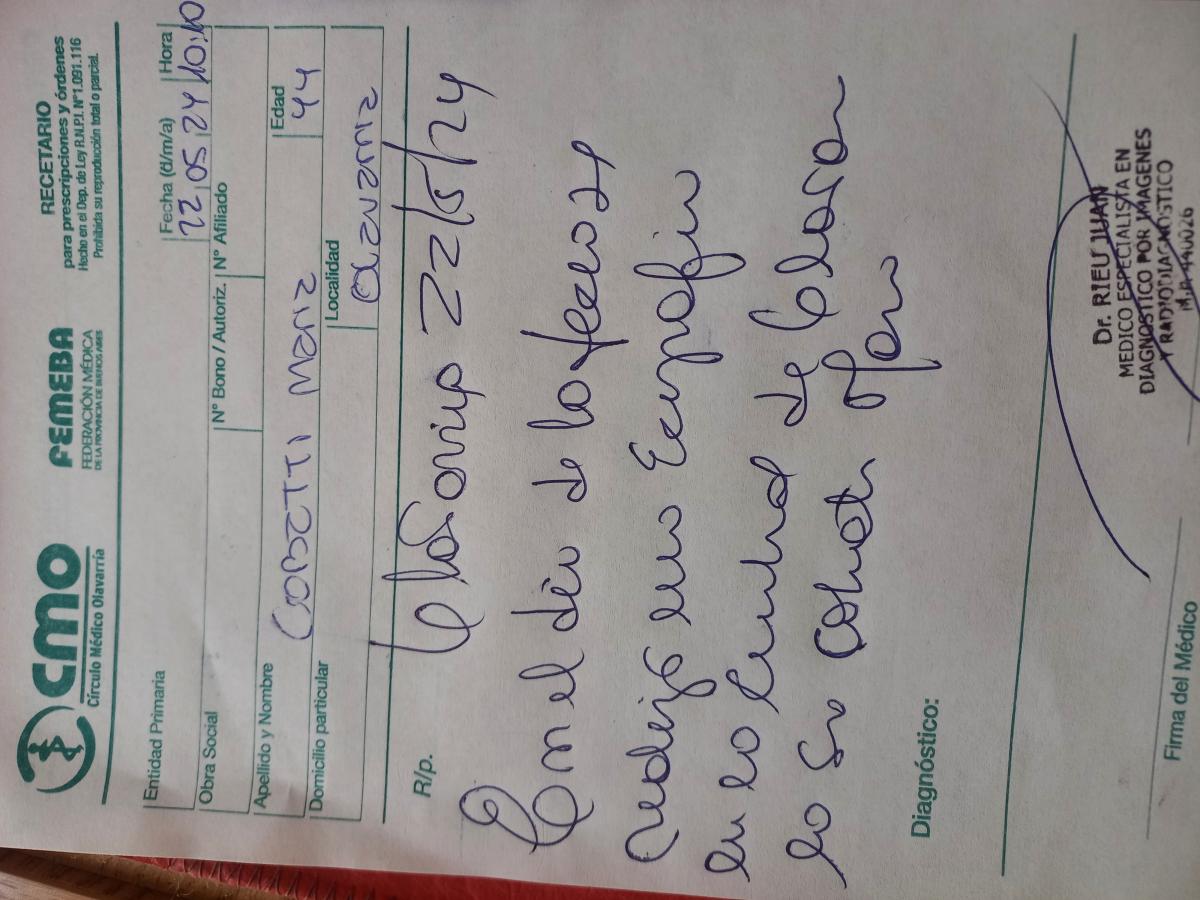 CMO
Círculo Médico Olavarría
FEMEBA
FEDERACIÓN MÉDICA
DE LA PROVINCIA DE BUENOS AIRES
RECETARIO
para prescripciones y órdenes
Hecho en el Dep. de Ley R.N.P.I. Nº1.091.116
Prohibida su reproducción total o parcial.
Entidad Primaria
Fecha (d/m/a) Hora
22 05 24 10:10
Obra Social
Nº Bono / Autoriz. Nº Afiliado
Apellido y Nombre
Edad
MARIA 44
Domicilio particular
Localidad
OLAVARRIA
R/p.
22/5/24
En el día de la fecha se
realizó una Ecografía
en la
la Sra
Diagnóstico:
Dr. RIEU JUAN
MEDICO ESPECIALISTA EN
DIAGNOSTICO POR IMAGENES
Y RADIODIAGNOSTICO
Firma del Médico